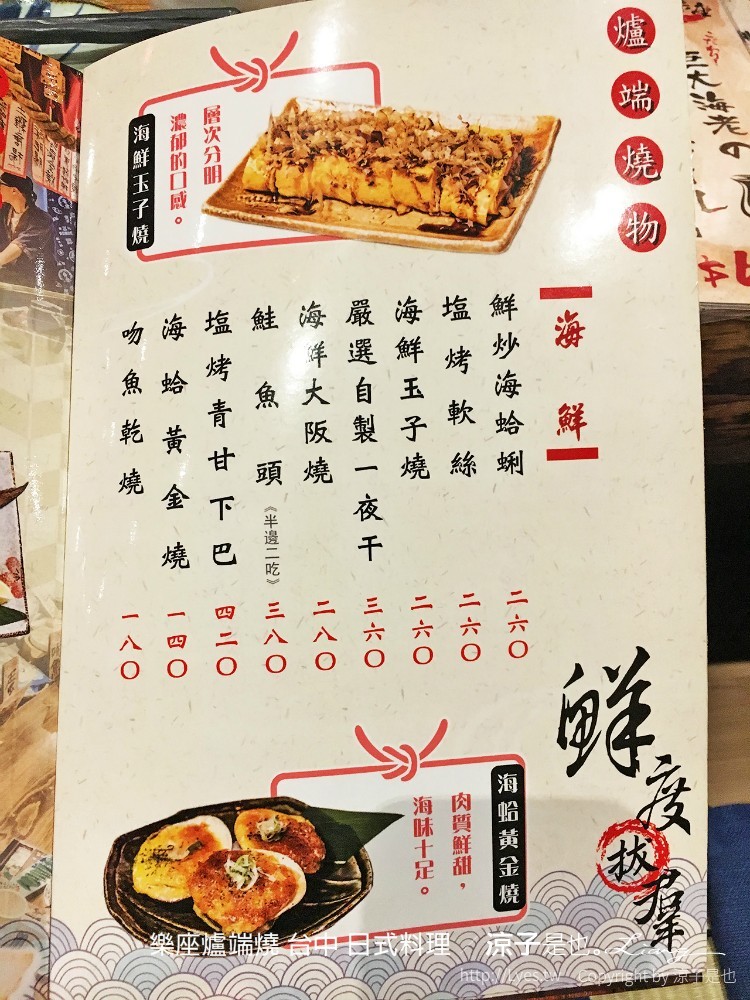 爐端燒物
層次分明
濃郁的口感。
海鮮玉子燒
海鮮
鮮炒海蛤蜊 二六〇
塩烤軟絲 二六〇
海鮮玉子燒 二六〇
嚴選自製一夜干 三六〇
海鮮大阪燒 二八〇
鮭魚頭《半邊二吃》 三八〇
塩烤青甘下巴 四二〇
海蛤黃金燒 一四〇
吻魚乾燒 一八〇
海蛤黃金燒
肉質鮮甜，
海味十足。
鮮度拔羣
巨大海老の
樂座爐端燒 台中 日式料理 涼子是也。
http://Lyes.tw Copyright by 涼子是也